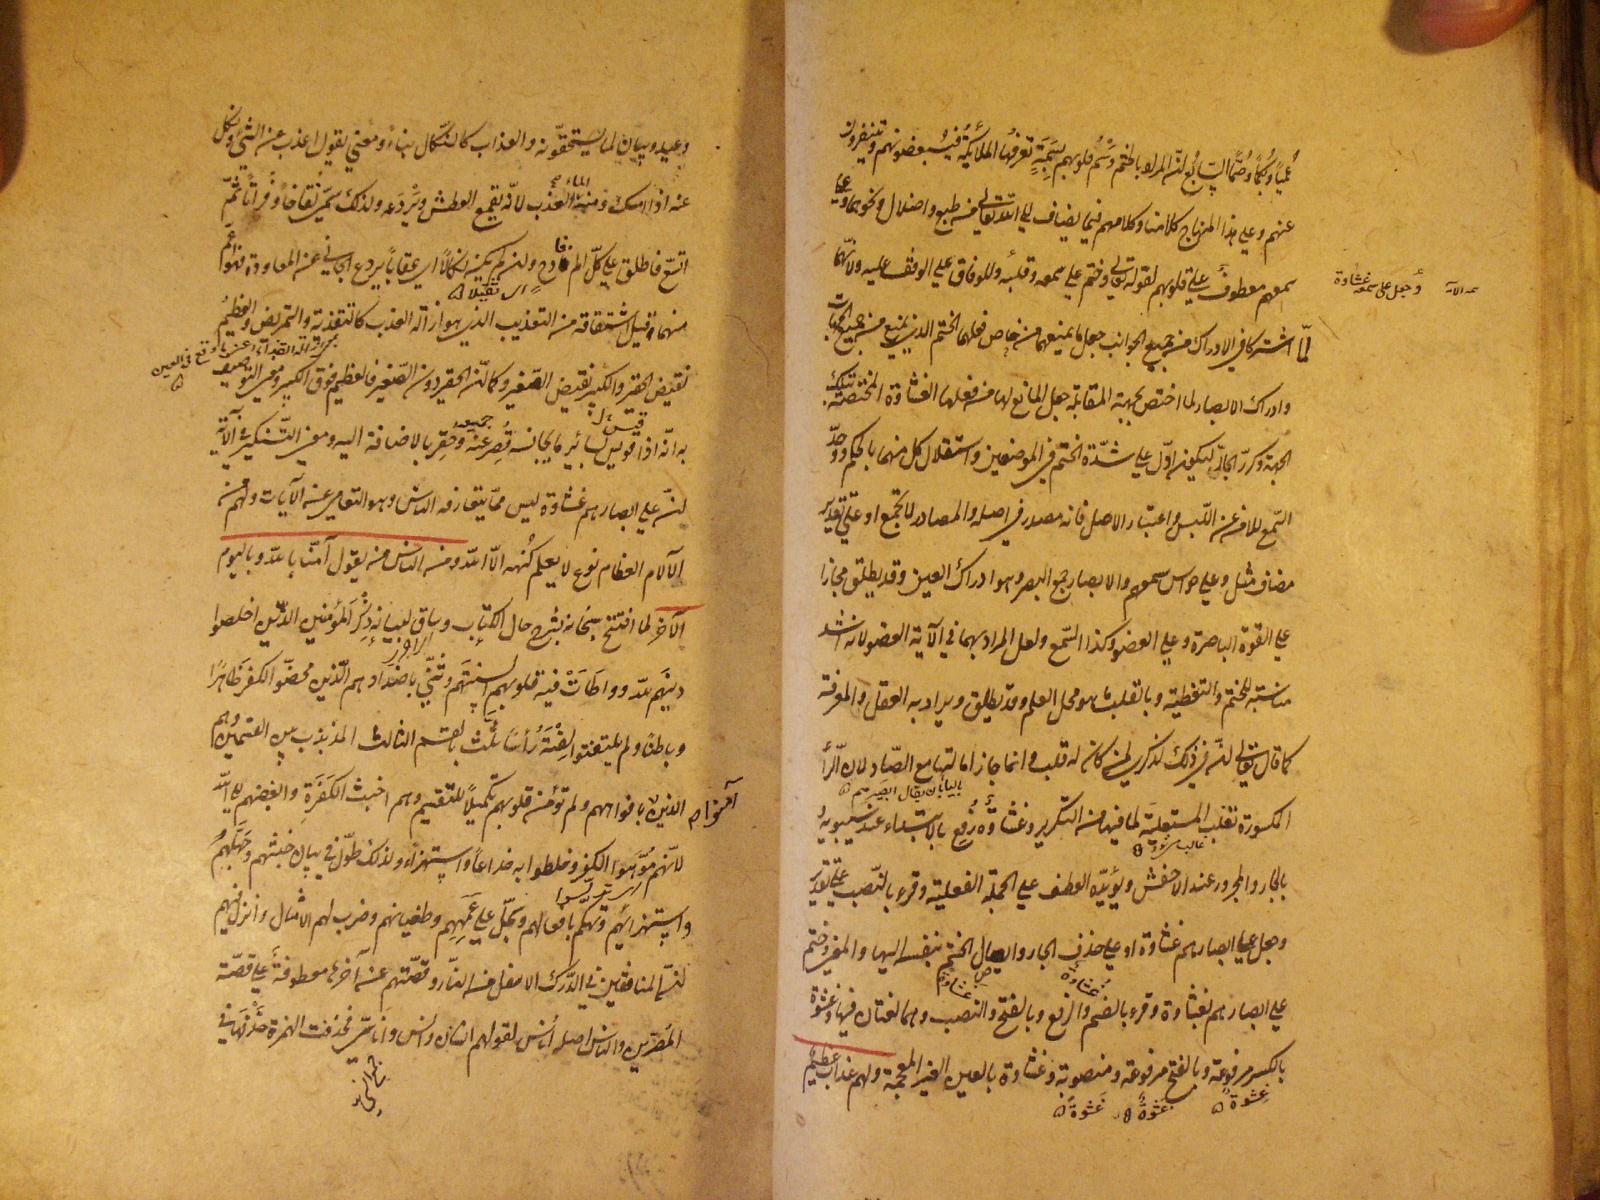 عُميًا وبُكمًا وصُمًّا السابع انّ المراد بالختم وَسْمُ قلوبهم بسِمَةٍ تعرفها الملائكة فيُبغضونهم ويتنفرون
عنهم وعلى هذا المنهاج كلامنا وكلامهم فيما يضاف الى الله تعالى من طبع واضلال ونحوهما وعلى
سمعهم معطوف على قلوبهم لقوله تعالى وختم على سمعه وقلبه وللوفاق على الوقف عليه ولانّهما
وجعل على سمعه غشاوة
لمّا اشتركا في الادراك من جميع الجوانب جعل ما يمنعهما من خاص فعلهما الختم الذي يمنع من جميع الجهات
وادراك الابصار لما اختص بجهة المقابلة جعل المانع لها من فعلها الغشاوة المختصّة بتلك
الجهة وكرّر الجارّ ليكون ادلّ على شدّة الختم في الموضعين واستقلال كل منهما بالحكم ووحّد
السّمع للامن عن اللّبس واعتبار الاصل فانه مصدر في اصله والمصادر لا تجمع او على تقدير
مضاف مثل وعلى حواس سمعهم والابصار جمع البصر وهو ادراك العين وقد يطلق مجازا
على القوة الباصرة وعلى العضو وكذا السّمع ولعل المراد بهما في الآية العضو لانه اشد
مناسبة للختم والتغطية وبالقلب ما هو محل العلم وقد يطلق ويراد به العقل والمعرفة
كما قال تعالى انّ في ذلك لذكرى لمن كان له قلب وانما جاز امالتها مع الصّاد لان الرّاء
المكسورة تغلب المستعلية لما فيها من التكرير وغشاوة رُفِع بالابتداء عند سيبويه
بالجار والمجرور عند الاخفش ويؤيّده العطف على الجملة الفعلية وقرء بالنّصب على تقدير
وجعل على ابصارهم غشاوة او على حذف الجار وايصال الختم بنفسه اليها والمعنى وختم
على ابصارهم بغشاوة وقرء بالضم والرفع وبالفتح والنصب وهما لغتان فيها وغشوة
غُشاوةٌ غَشاوةً
بالكسر مرفوعة وبالفتح مرفوعة ومنصوبة وغشاوة بالعين الغير المعجمة ولهم عذاب عظيم
غِشوةٌ غَشوةٌ غَشوةً
وعيد وبيان لما يستحقّونه والعذاب كالنّكال بناءً ومعنى يقول اعذب عن الشئ ونكل
عنه اذا امسك ومنه الماء العذب لانّه يقمع العطش ويردعه ولذلك سمّى نُقاخًا وفُراتًا ثمّ
اتسع فاطلق على كلّ الم فادح وان لم يكن نكالًا اى عقابًا يردع الجانى عن المعاودة فهو اعمّ
اى ثقيلا
منهما وقيل اشتقاقه من التعذيب الذى هو ازالة العذب كالتقذية والتمريض والعظيم
نقيض الحقير والكبير نقيض الصّغير وكما انّ الحقير دون الصّغير فالعظيم فوق الكبير ومعنى التوصيف
به انّه اذا قيس بسائر ما يجانسه قصر عنه جميعه وحقر بالاضافة اليه ومعنى التّنكير فى الآية
انّ على ابصارهم غشاوة ليس ممّا يتعارفه الناس وهو التعامى عن الآيات ولهم من
الآلام العظام نوع لا يعلم كُنهه الّا الله ومن الناس من يقول آمنّا بالله وباليوم
الآخر لما افتتح سبحانه بشرح حال الكتاب وساق لبيانه ذكْر المؤمنين الّذين اخلصوا
دينهم لله وواطَأَتْ فيه قلوبهم السنتهم وثنّى باضدادهم الّذين محضوا الكفر ظاهرًا
وباطنًا ولم يلتفتوا لِفْتَهُ رأسًا ثلّث بالقسم الثالث المذبذب بين القسمين وهم
الذين آمنوا بافواههم ولم تؤمن قلوبهم تكميلًا للتقسيم وهم اخبث الكَفَرة وابغضهم الى الله
لانّهم موّهوا الكفر وخلطوا به خداعًا واستهزاءً ولذلك طوّل فى بيان خبثهم وجهلهم
واستهزائهم وتهكم بافعالهم وسجّل على عَمَهِهم وطغيانهم وضرب لهم الامثال وانزل فيهم
انّ المنافقين فى الدّرك الاسفل من النّار وقصّتهم عن آخرها معطوفة على قصّة
المُصرّين والناس اصله أناس لقولهم انسان وانس واناسىّ فحذفت الهمزة حذفها فى